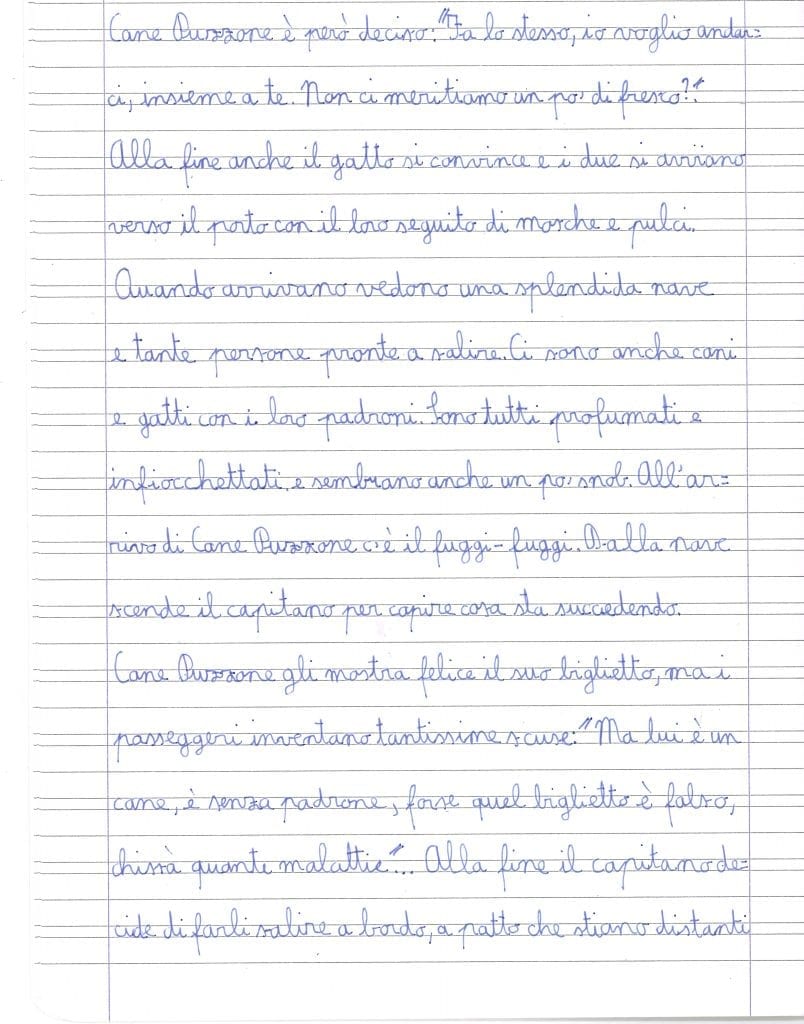 Cane Puzzone è però deciso: "Fa lo stesso, io voglio andar=
ci, insieme a te. Non ci meritiamo un po' di fresco?"
Alla fine anche il gatto si convince e i due si avviano
verso il porto con il loro seguito di mosche e pulci.
Quando arrivano vedono una splendida nave
e tante persone pronte a salire. Ci sono anche cani
e gatti con i loro padroni. Sono tutti profumati e
infiocchettati, e sembrano anche un po' snob. All'ar=
rivo di Cane Puzzone c'è il fuggi-fuggi. Dalla nave
scende il capitano per capire cosa sta succedendo.
Cane Puzzone gli mostra felice il suo biglietto, ma i
passeggeri inventano tantissime scuse: "Ma lui è un
cane, è senza padrone, forse quel biglietto è falso,
chissà quante malattie"... Alla fine il capitano de=
cide di farli salire a bordo, a patto che stiano distanti